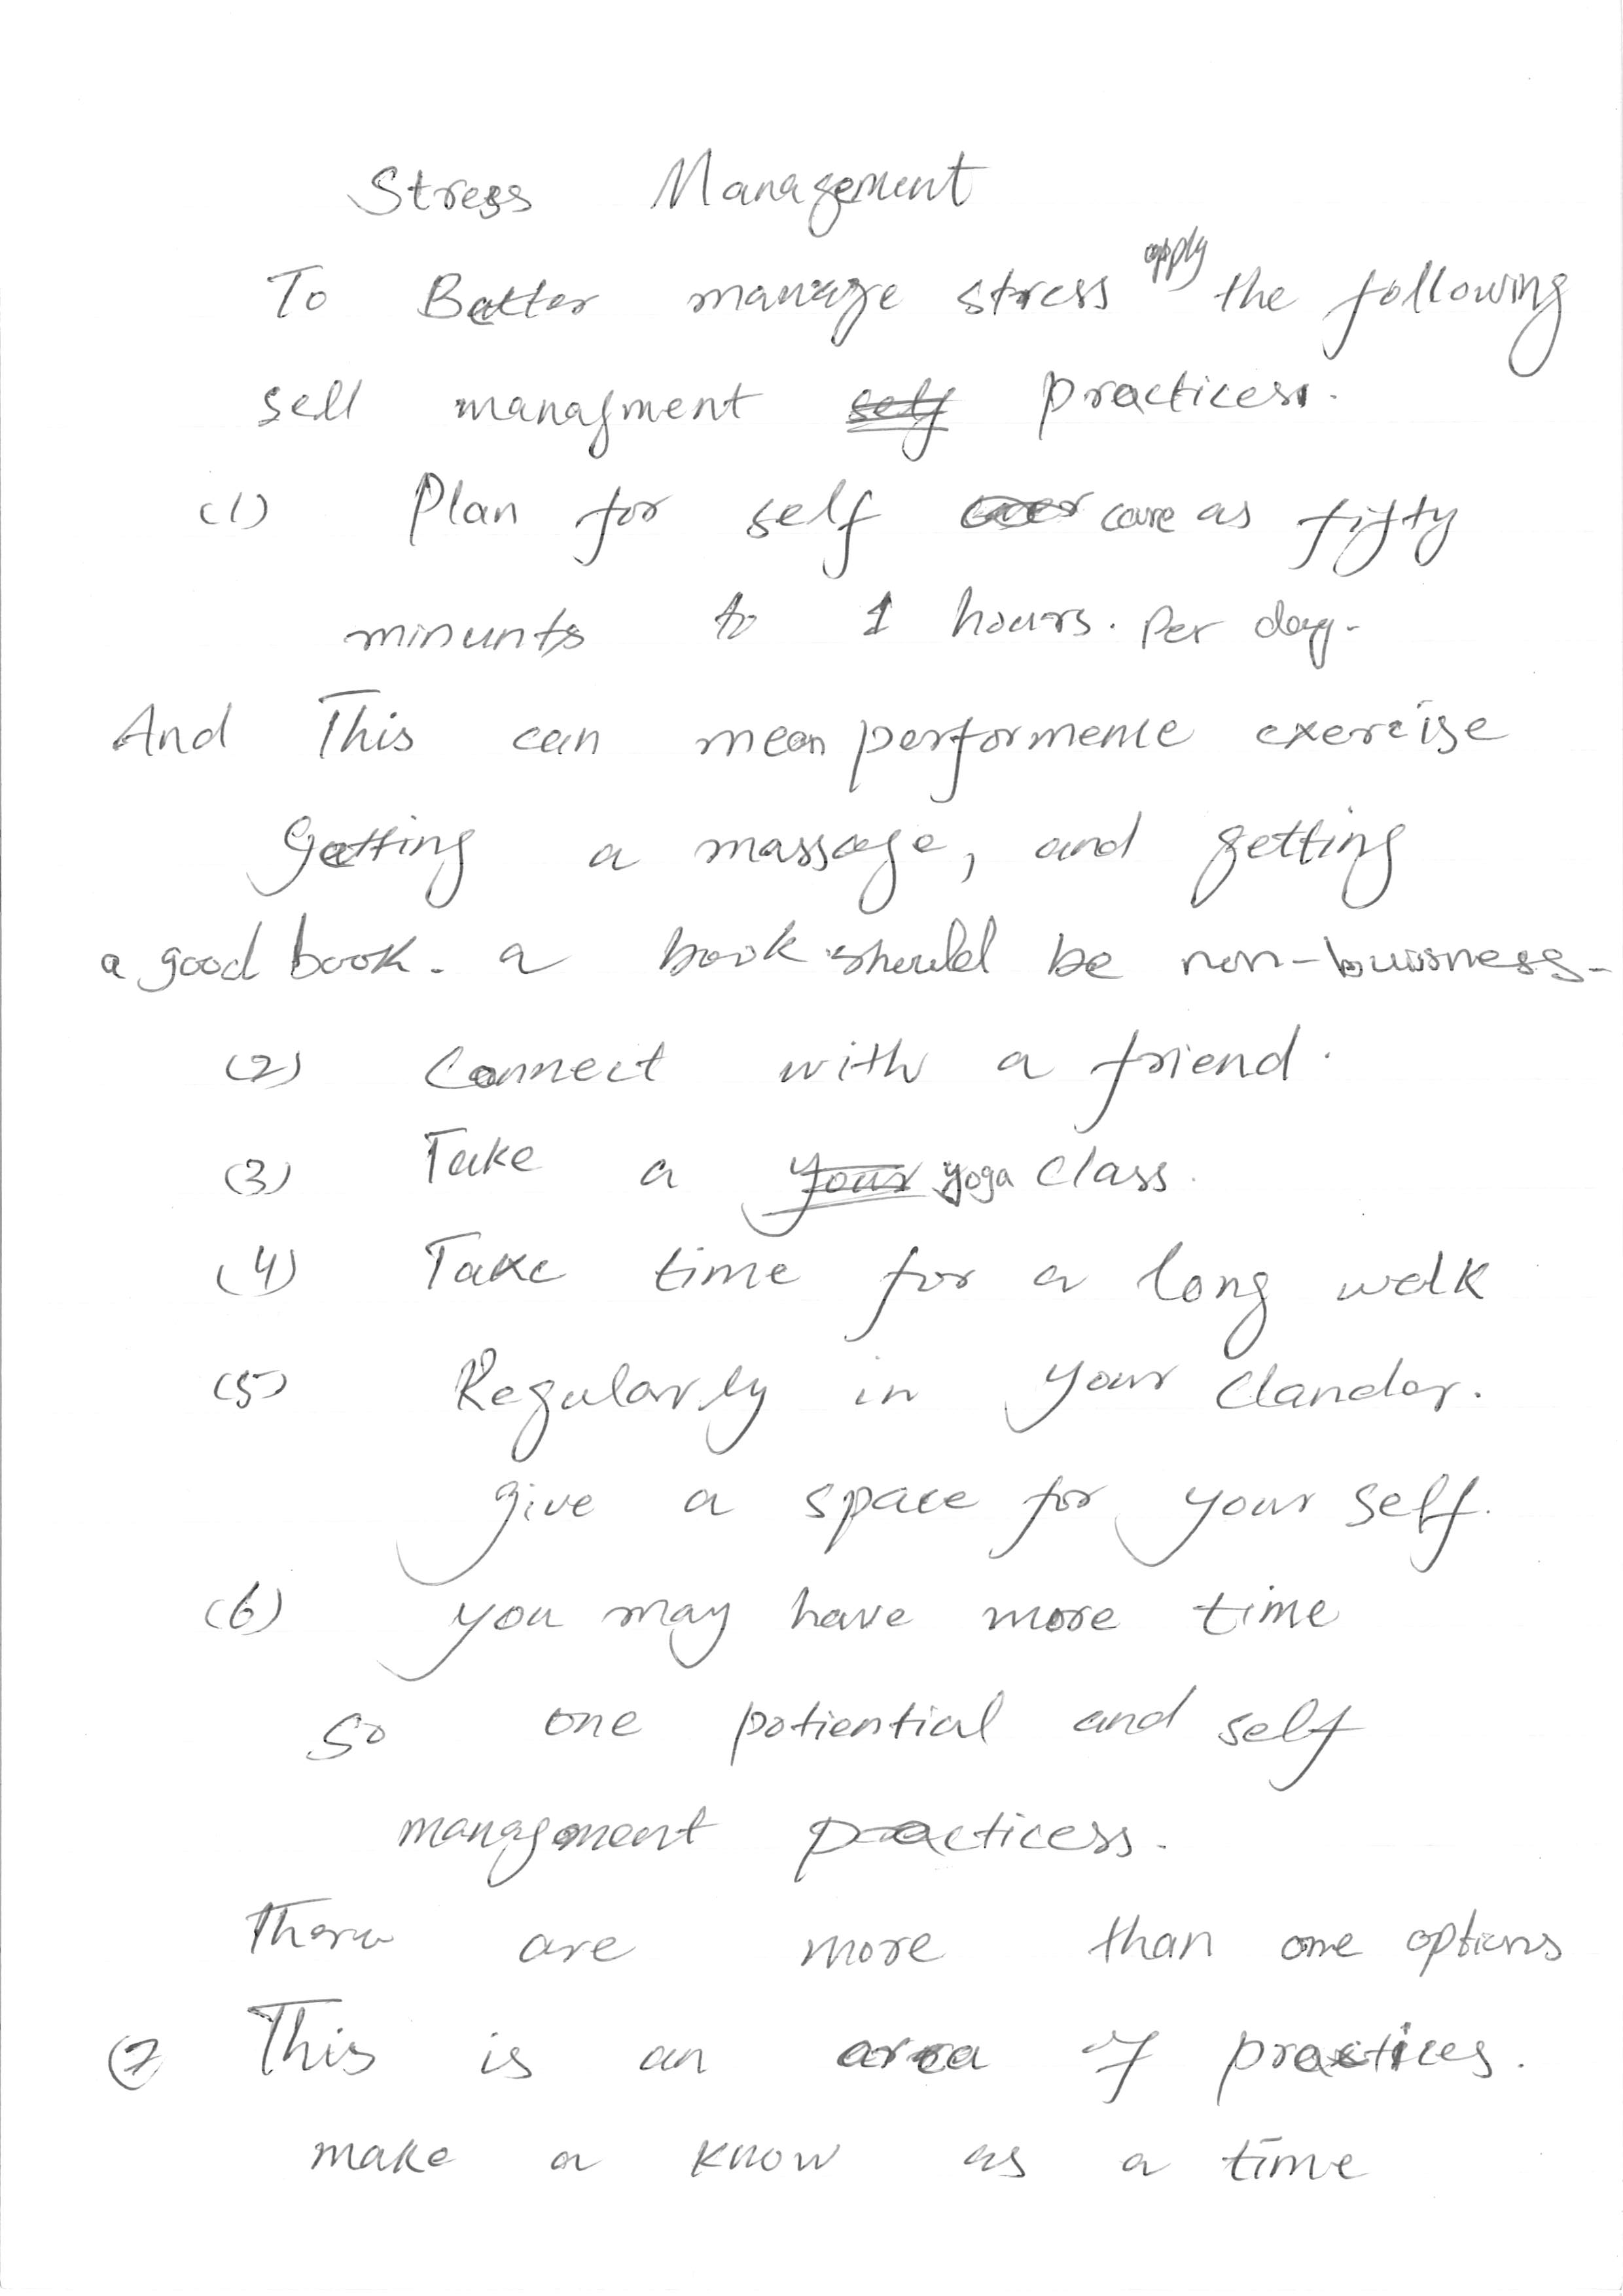 Stress Management
To Better manage stress apply the following
sell managment self practicess.
(1) Plan for self care as fifty
minunts to 1 hours. Per day.
And This can mean performence exercise
getting a massage, and getting
a good book. a book should be non-buisness-
(2) Connect with a friend.
(3) Take a your yoga class.
(4) Take time for a long walk
(5) Regularly in your Clander.
give a space for your self.
(6) you may have more time
So one potiential and self
managment practicess.
There are more than one options
(7 This is an area of practices.
make a know as a time